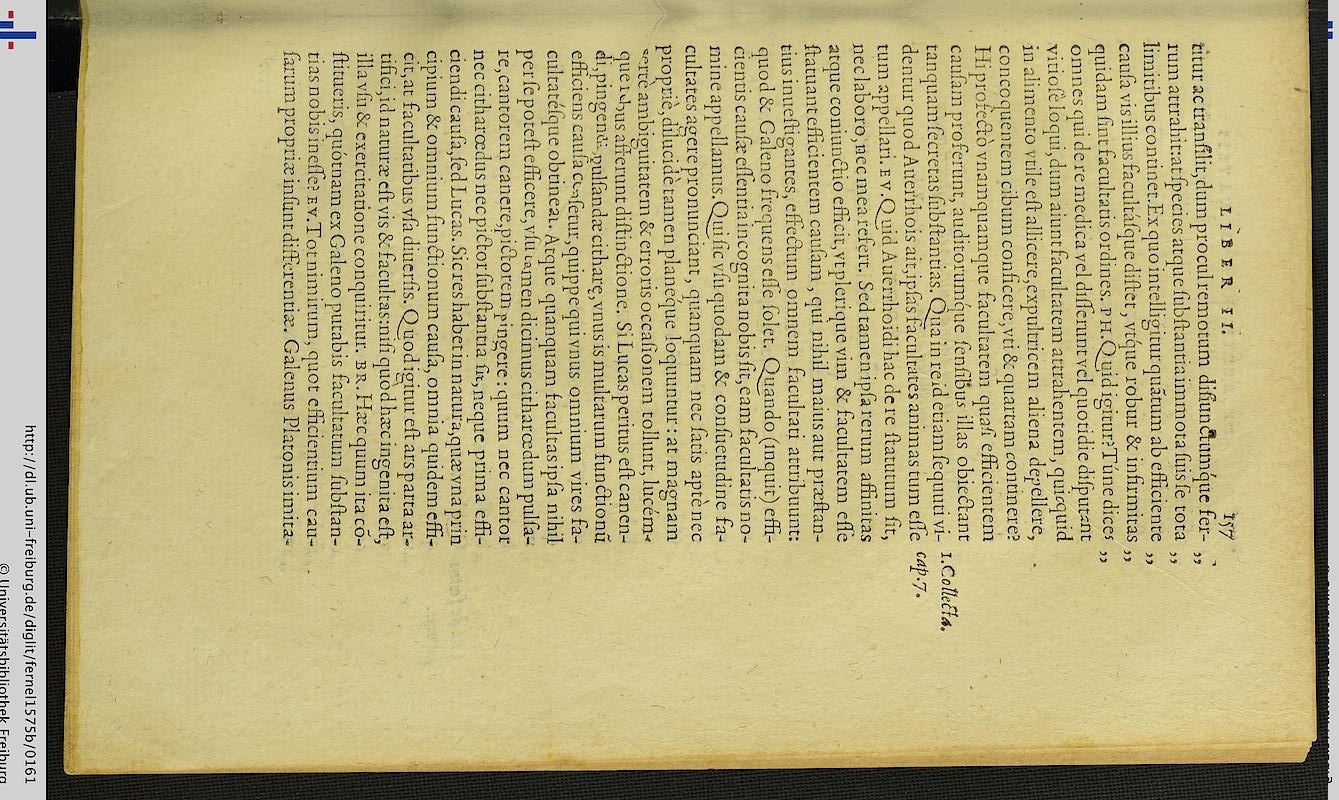 LIBER II. 157
titur ac transilit, dum procul remotum disiunctumque fer- „
rum attrahit: at species atque substantia immota suis se tota „
limitibus continet. Ex quo intelligitur quãtum ab efficiente „
causa vis illius facultásque distet, vtque robur & infirmitas „
quidam sint facultatis ordines. PH. Quid igitur? Túne dices „
omnes qui de re medica vel disserunt vel quotidie disputant
vitiosè loqui, dum aiunt facultatem attrahentem, quicquid
in alimento vtile est allicere, expultricem aliena depellere,
concoquentem cibum conficere, vti & quartam continere?
Hi profectò vnamquamque facultatem quasi efficientem
causam proferunt, auditorumque sensibus illas obiectant
tanquam secretas substantias. Qua in re id etiam sequuti vi- 1. Collecta.
dentur quod Auerrhois ait, ipsas facultates animas tum esse cap. 7.
tum appellari. EV. Quid Auerrhoidi hac de re statutum sit,
nec laboro, nec mea refert. Sed tamen ipsa rerum affinitas
atque coniunctio efficit, vt plerique vim & facultatem esse
statuant efficientem causam, qui nihil maius aut præstan-
tius inuestigantes, effectum omnem facultati attribuunt:
quod & Galeno frequens esse solet. Quando (inquit) effi-
cientis causæ essentia incognita nobis sit, eam facultatis no-
mine appellamus. Qui sic vsu quodam & consuetudine fa-
cultates agere pronunciant, quanquam nec satis aptè nec
propriè, dilucidè tamen planéque loquuntur: at magnam
sępe ambiguitatem & erroris occasionem tollunt, lucém-
que rebus afferunt distinctione. Si Lucas peritus est canen-
di, pingendi, pulsandæ citharę, vnus is multarum functionũ
efficiens causa censetur, quippe qui vnus omnium vires fa-
cultatésque obtineat. Atque quanquam facultas ipsa nihil
per se potest efficere, vsu tamen dicimus citharœdum pulsa-
re, cantorem canere, pictorem pingere: quum nec cantor
nec citharœdus nec pictor substantia sit, neque prima effi-
ciendi causa, sed Lucas. Sic res habet in natura, quæ vna prin
cipium & omnium functionum causa, omnia quidem effi-
cit, at facultatibus vsa diuersis. Quod igitur est ars parta ar-
tifici, id naturæ est vis & facultas: nisi quod hæc ingenita est,
illa vsu & exercitatione conquiritur. BR. Hæc quum ita cō-
stitueris, quónam ex Galeno putabis facultatum substan-
tias nobis inesse? EV. Tot nimirum, quot efficientium cau-
sarum propriæ insunt differentiæ. Galenus Platonis imita-
http://dl.ub.uni-freiburg.de/diglit/fernel1575b/0161
© Universitätsbibliothek Freiburg